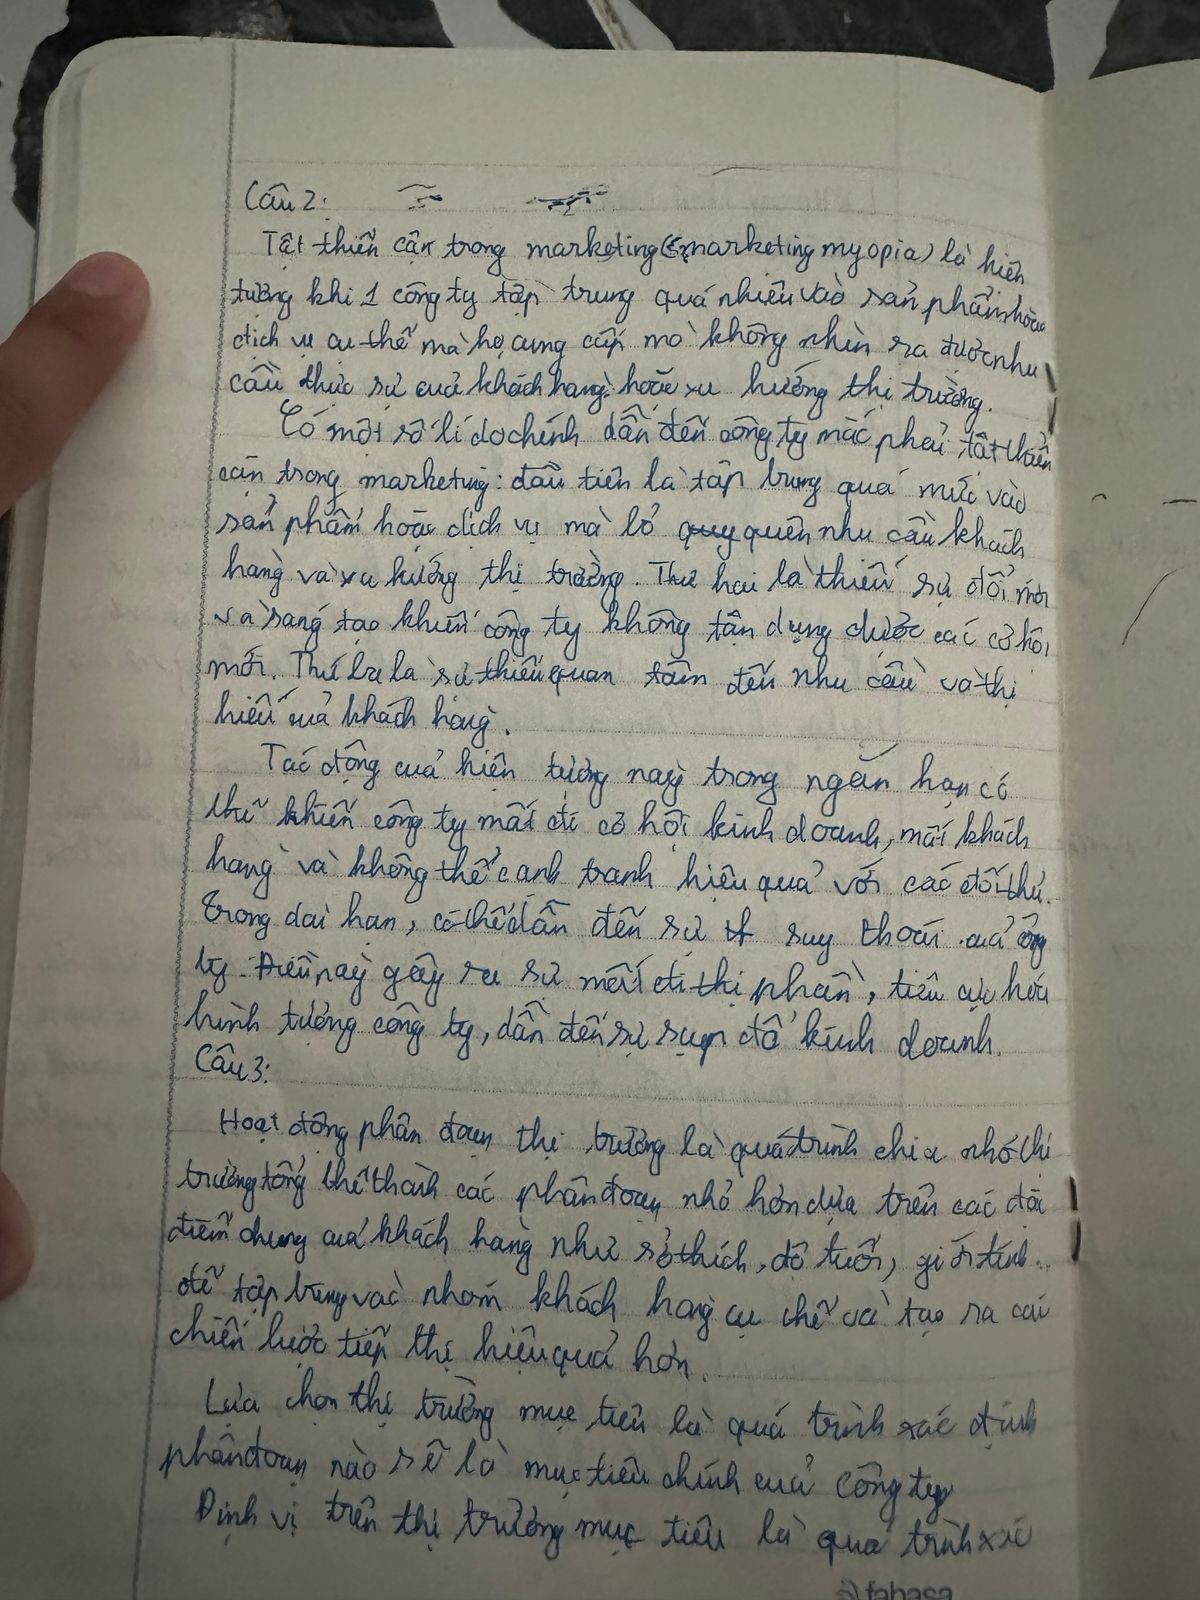 Câu 2:
Tật thiển cận trong marketing (marketing myopia) là hiện
tượng khi 1 công ty tập trung quá nhiều vào sản phẩm hoặc
dịch vụ cụ thể mà họ cung cấp mà không nhìn ra được nhu
cầu thực sự của khách hàng hoặc xu hướng thị trường.
Có một số lí do chính dẫn đến công ty mắc phải tật thiển
cận trong marketing: đầu tiên là tập trung quá mức vào
sản phẩm hoặc dịch vụ mà bỏ quên nhu cầu khách
hàng và xu hướng thị trường. Thứ hai là thiếu sự đổi mới
và sáng tạo khiến công ty không tận dụng được các cơ hội
mới. Thứ ba là sự thiếu quan tâm đến nhu cầu và thị
hiếu của khách hàng.
Tác động của hiện tượng này trong ngắn hạn có
thể khiến công ty mất đi cơ hội kinh doanh, mất khách
hàng và không thể cạnh tranh hiệu quả với các đối thủ.
Trong dài hạn, có thể dẫn đến sự suy thoái của công
ty. Điều này gây ra sự mất đi thị phần, tiêu cực hóa
hình tượng công ty, dẫn đến sự sụp đổ kinh doanh.
Câu 3:
Hoạt động phân đoạn thị trường là quá trình chia nhỏ thị
trường tổng thể thành các phân đoạn nhỏ hơn dựa trên các đặc
điểm chung của khách hàng như sở thích, độ tuổi, giới tính...
để tập trung vào nhóm khách hàng cụ thể và tạo ra các
chiến lược tiếp thị hiệu quả hơn.
Lựa chọn thị trường mục tiêu là quá trình xác định
phân đoạn nào sẽ là mục tiêu chính của công ty
Định vị trên thị trường mục tiêu là quá trình xác
fahasa